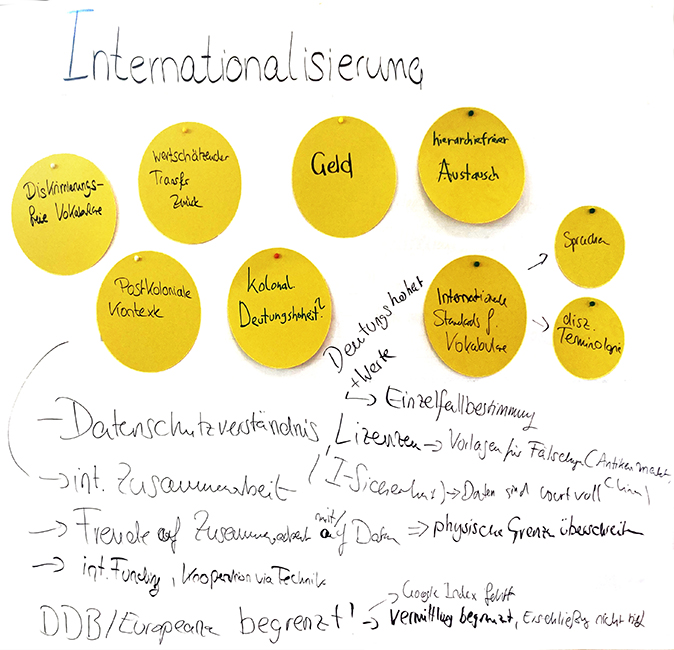 Internationalisierung
Diskriminierungs-
freie Vokabulare
Wertschätzender
Transfer
Zurück
Geld
hierarchiefreier
Austausch
Postkoloniale
Kontexte
Kolonial
Deutungshoheit?
Deutungshoheit
+ Werte
Internationale
Standards f.
Vokabulare
Sprachen
disz.
Terminologie
→ Einzelfallbestimmung
- Datenschutzverständnis
Lizenzen → Vorlagen für Fälschgn (Antikenmarkt,
→ int. Zusammenarbeit
(I-Sicherheit) → Daten sind wertvoll
→ Freude auf Zusammenarbeit mit/auf Daten ⇒ physische Grenze überschreiten
→ int. Funding, Kooperation via Technik
Google Index
DDB/Europeana begrenzt! → Vermittlung begrenzt, Erschließg nicht